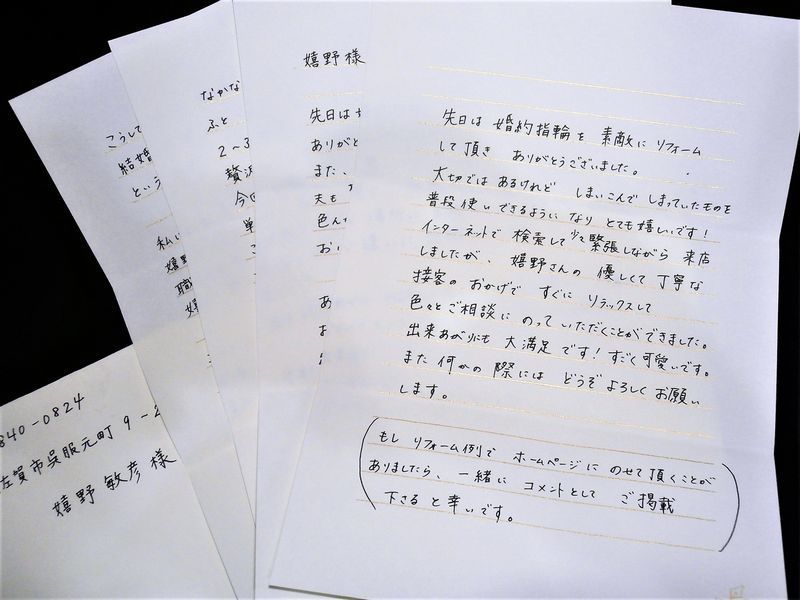 こうして
結婚
という
私
職
なかな
ふと
2〜3
贅沢
今回
単
嬉野様
先日は
ありがと
また、
夫も
色ん
お
あ
先日は 婚約指輪を 素敵に リフォーム
して頂き ありがとうございました。
大切ではあるけれど しまいこんで しまっていたものを
普段使いできるようになり とても嬉しいです!
インターネットで 検索して 少々緊張しながら 来店
しましたが、嬉野さんの 優しくて丁寧な
接客の おかげで すぐに リラックスして
色々とご相談に のって いただくことができました。
出来あがりにも 大満足です!すごく可愛いです。
また 何かの 際には どうぞ よろしく お願い
します。
(もし リフォーム例で ホームページに のせて頂くことが
ありましたら、一緒に コメントとして ご掲載
下さると幸いです。)
840-0824
佐賀市呉服元町 9-2
嬉野 敏彦 様